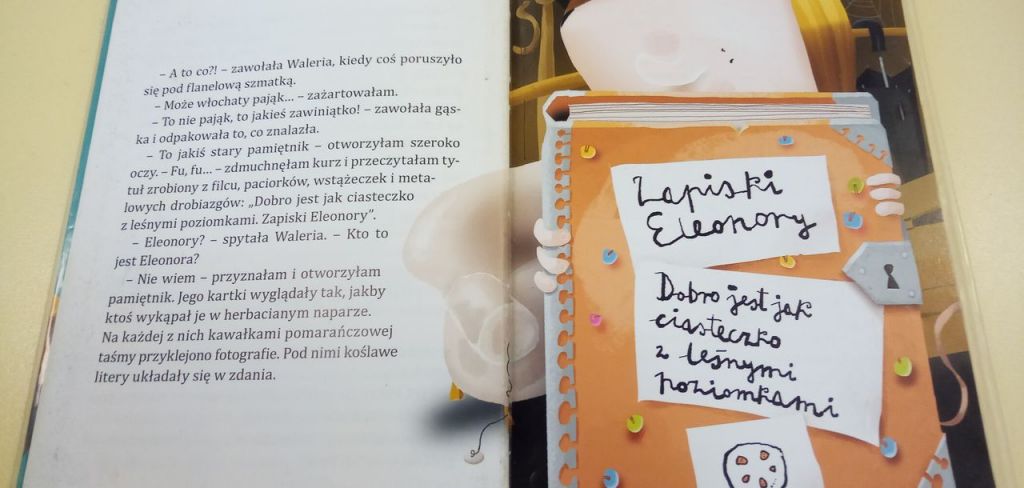 – A to co?! – zawołała Waleria, kiedy coś poruszyło
się pod flanelową szmatką.
– Może włochaty pająk... – zażartowałam.
– To nie pająk, to jakieś zawiniątko! – zawołała gąs-
ka i odpakowała to, co znalazła.
– To jakiś stary pamiętnik – otworzyłam szeroko
oczy. – Fu, fu... – zdmuchnęłam kurz i przeczytałam ty-
tuł zrobiony z filcu, paciorków, wstążeczek i meta-
lowych drobiazgów: „Dobro jest jak ciasteczko
z leśnymi poziomkami. Zapiski Eleonory”.
– Eleonory? – spytała Waleria. – Kto to
jest Eleonora?
– Nie wiem – przyznałam i otworzyłam
pamiętnik. Jego kartki wyglądały tak, jakby
ktoś wykąpał je w herbacianym naparze.
Na każdej z nich kawałkami pomarańczowej
taśmy przyklejono fotografie. Pod nimi koślawe
litery układały się w zdania.
Zapiski
Eleonory
Dobro jest jak
ciasteczko
z leśnymi
poziomkami